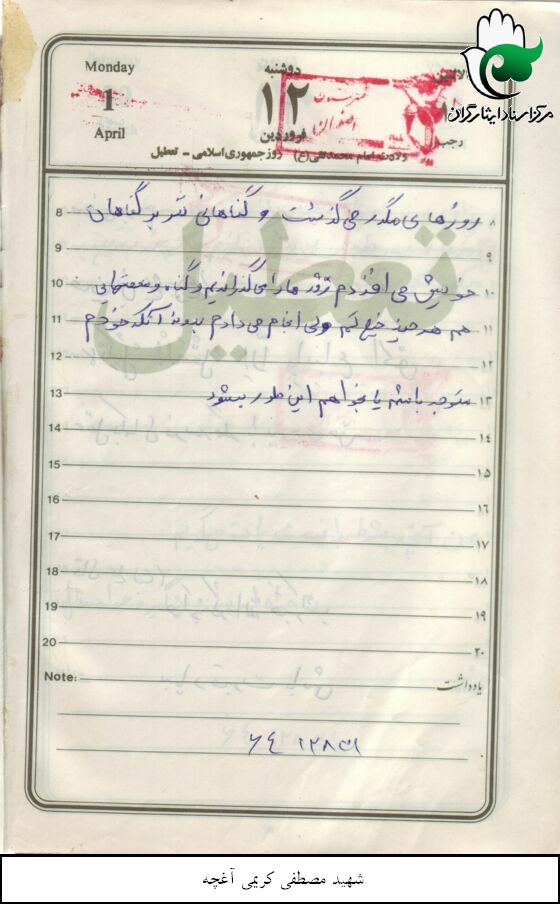 Monday
1
April
دوشنبه
۱۲
فروردین
رجب
مرکز اسناد ایثارگران
ولادت امام محمدتقی (ع) روز جمهوری اسلامی - تعطیل
تعطیل
8 روزهای مگذر می گذشت و گناهانی نیز بر گناهان ۸
9 ۹
10 خویش می افزودم روز ها را می گذراندیم و گناه و معصیتهایی ۱۰
11 هم هر چند خیلی کم ولی انجام می دادم بدون آنکه خودم ۱۱
12 ۱۲
13 متوجه باشم یا بخواهم این طور بشود ۱۳
14 ۱۴
15 ۱۵
16 ۱۶
17 ۱۷
18 ۱۸
19 ۱۹
20 ۲۰
Note: یادداشت
شهید مصطفی کریمی آغچه